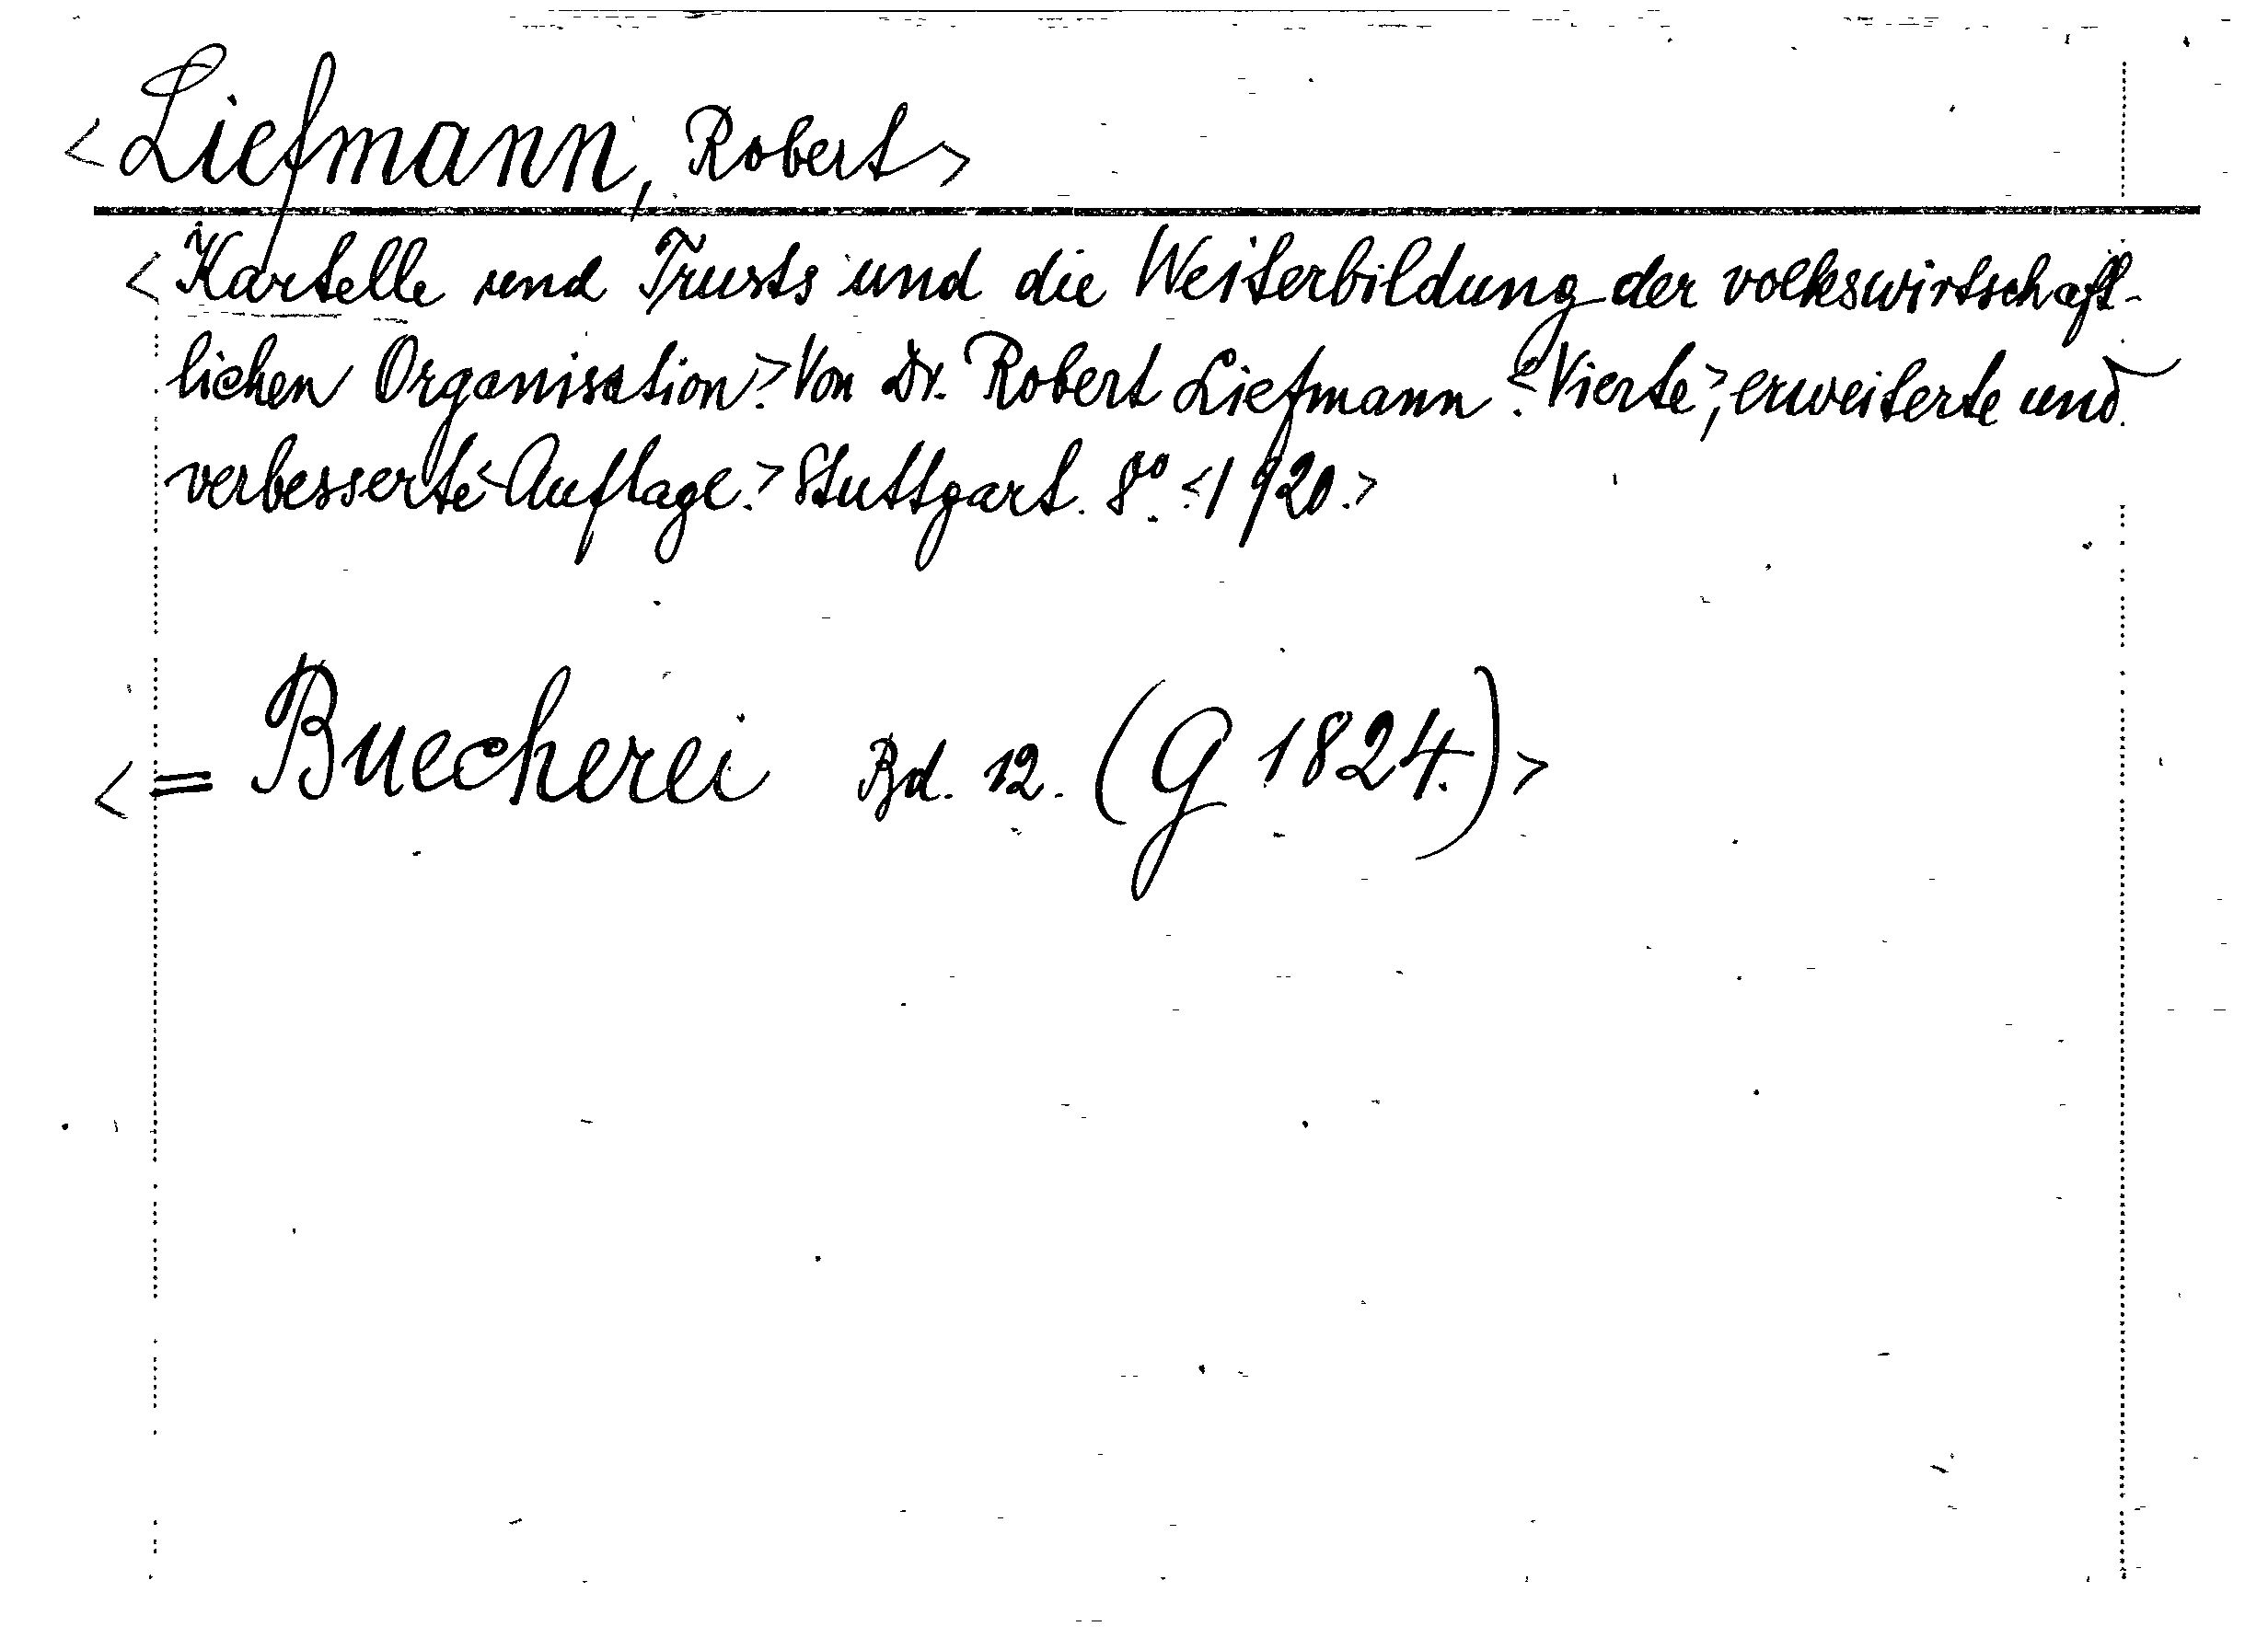 <Liefmann, Robert>
<Kartelle und Trusts und die Weiterbildung der volkswirtschaft-
lichen Organisation.> Von Dr. Robert Liefmann. <Vierte>, erweiterte und
verbesserte <Auflage.> Stuttgart. 8°. <1920.>
<= Buecherei Bd. 12. (G 1824.)>